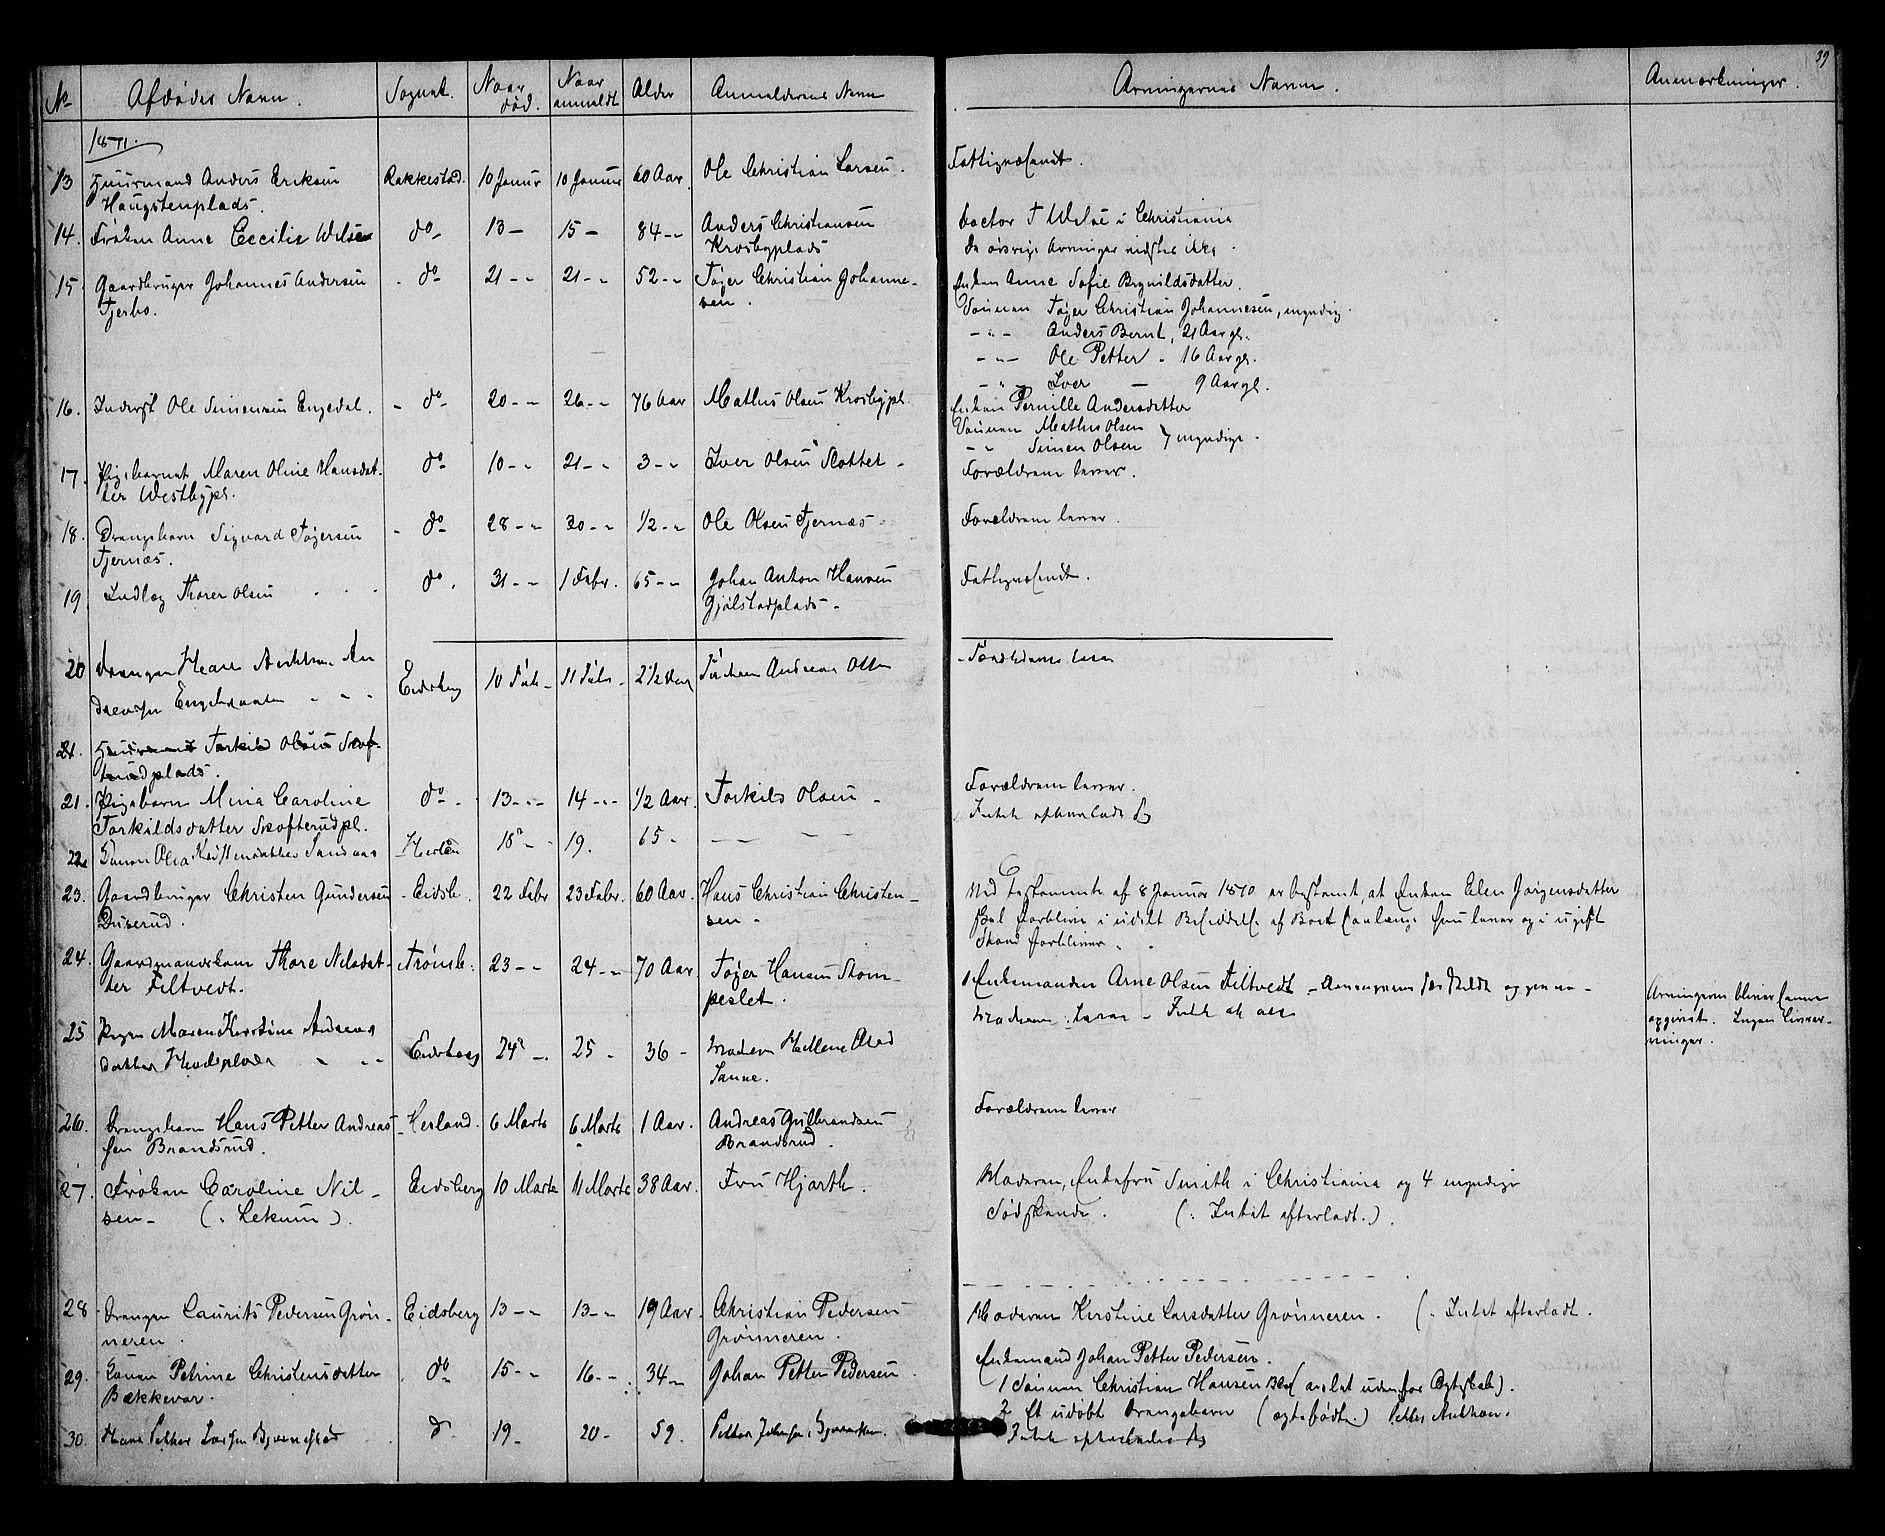 39
No Afdødes Navn. Sognet. Naar død. Naar anmeldt Alder Anmelderens Navn Arvingernes Navne. Anmærkninger.
1871.
13 Huusmand Anders Eriksen Rakkestad. 10 Januar 10 Januar 60 Aar. Ole Christian Larsen. Fattigvæsenet.
Haugstenplads.
14. Frøken Anne Cecilie Welse do 13 - 15 - 84 - " Anders Christiansen Doctor T Welse i Christiania
Krosbyplads De øvrige Arvinger vidstes ikke.
15. Gaardbruger Johannes Andersen - do 21 - " 21 - " 52 - " Tøger Christian Johanne- Enken Anne Sofie Brynildsdatter.
Fjerbo. sen. Sønnen Tøger Christian Johannesen, myndig.
- " - Anders Bernt, 21 Aar gl.
- " - Ole Petter - 16 Aar gl.
- " - Iver — 9 Aar gl.
16. Inderst Ole Simensen Engedal. - do 20 - " 26 - " 76 Aar Mathis Olsen Krosbypl. Enken Pernille Andersdatter
Sønnen Mathis Olsen
- " Simen Olsen } myndige.
17. Pigebarnet Maren Oline Hansdat- do 10 - " 21 - " 3 - " Iver Olsen Slottet - Forældrene lever.
ter Westbypl.
18. Drengebarn Sigvard Tøgersen - do 28 - " 30 - " 1/2 - " Ole Olsen Tjernæs - Forældrene lever.
Tjernæs.
19. Indlæg Thorer Olsen do. 31 - " 1 Febr. 65 - " Johan Anton Hansen Fattigvæsenet.
Gjølstadplads -
20 Drengen Hans Anthon An Eidsberg 10 Feb - 11 Febr - 2 1/2 Aar Faderen Andreas Olsen - Forældrene lever
dreasen
21. Huusmand Torkild Olsen Skof-
terudplads.
21. Pigebarn Mina Caroline do - 13 - " - 14 - " - 1/2 Aar. Torkild Olsen - Forældrene lever.
Torkildsdatter Skofterudpl. Intet efterladt
22 Hærland 18 - 19. 65 - — —
23. Gaardbruger Christen Gundersen - Eidsb. 22 Febr 23 Febr. 60 Aar. Hans Christian Christen- Ved Testamente af 8 Januar 1870 er bestemt, at Enken Elen Jørgensdatter
Duserud. sen - skal forblive i uskiftet Besiddelse af Boet saalænge hun lever og i ugift
Stand forbliver.
24. Gaardmandskone Thore Nilsdat- Trømb. 23 - " 24 - " 70 Aar Tøger Hansen Stom- Enkemanden Arne Olsen Filtvedt -
ter Filtvedt. peslet. Arvingerne bliver senere
opgivet. Ingen Livsar-
vinger.
25 Pigen Maren Kirstine Andreas Eidsberg 24 - 25 - 36 - Moderen Hellene Moderen lever - Intet at arve
datter Sanne.
26. Drengebarn Hans Petter Andreas - Herland. 6 Marts 6 Marts 1 Aar. Andreas Gulbrandsen Forældrene lever
sen Brandsrud. Brandsrud.
27. Frøken Caroline Nil- Eidsberg 10 Marts 11 Marts 38 Aar. Fru Hjorth. Moderen, Enkefru Smith i Christiania og 4 myndige
sen - (: Lekum). Sødskende. (: Intet efterladt.).
28 Drengen Laurits Pedersen Grøn- Eidsberg 13 - " 13 - " 19 Aar. Christian Pedersen Moderen Kirstine Larsdatter Grønneren. (: Intet efterladt.
neren. Grønneren.
29. Konen Petrine Christensdatter do 15 - " 16 - - 34 - Johan Petter Pedersen Enkemand Johan Petter Pedersen.
Bækkevar. 1 Sønnen Christian Hansen (avlet udenfor Ægteskab).
2 Et udøbt Drengebarn (ægtefødt.) Petter Anthon.
30. Hans Petter Larsen Bjørnestad do 19 - 20 - 59. Petter Johansen Intet efterladt